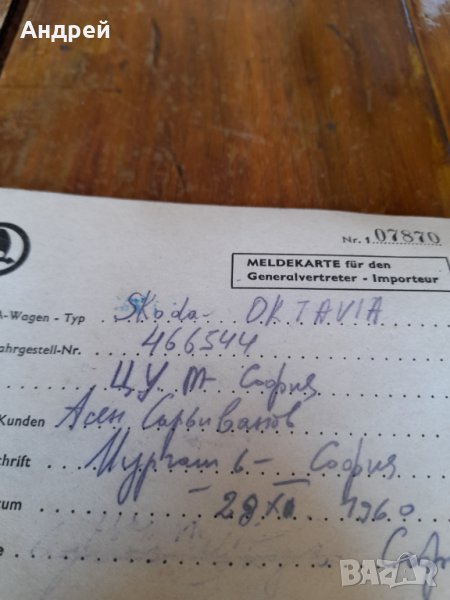 Андрей
Nr. 1 07870
MELDEKARTE für den
Generalvertreter - Importeur
A-Wagen - Typ Skoda OKTAVIA
ahrgestell-Nr. 466544
ЦУМ - София
Kunden Асен Саръиванов
schrift Мургаш 6 - София
tum 29 XII 1960
e
BAZAR